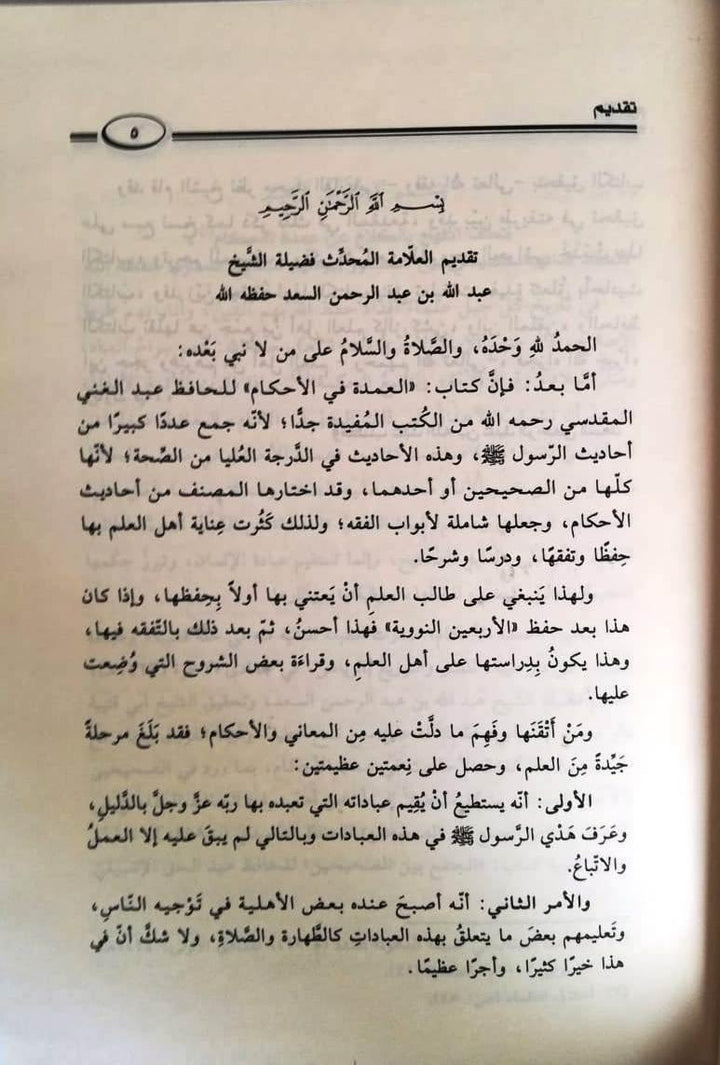 تقديم
٥
بِسْمِ اللَّهِ الرَّحْمَٰنِ الرَّحِيمِ
تقديم العلّامة المُحدِّث فضيلة الشَّيخ
عبد الله بن عبد الرحمن السعد حفظه الله
الحمدُ للهِ وَحْدَهُ، والصَّلاةُ والسَّلامُ على من لا نبي بَعْده:
أمَّا بعدُ: فإنَّ كتاب: «العمدة في الأحكام» للحافظ عبد الغني
المقدسي رحمه الله من الكُتب المُفيدة جدًّا؛ لأنّه جمع عددًا كبيرًا من
أحاديث الرّسول ﷺ، وهذه الأحاديث في الدَّرجة العُليا من الصِّحة؛ لأنّها
كلّها من الصحيحين أو أحدهما، وقد اختارها المصنف من أحاديث
الأحكام، وجعلها شاملة لأبواب الفقه؛ ولذلك كَثُرت عِناية أهل العلم بها
حِفظًا وتفقهًا، ودرسًا وشرحًا.
ولهذا يَنبغي على طالب العلمِ أنْ يَعتني بها أولاً بِحِفظها، وإذا كان
هذا بعد حفظ «الأربعين النووية» فهذا أحسنُ، ثمّ بعد ذلك بالتّفقه فيها،
وهذا يكونُ بِدِراستها على أهل العلمِ، وقراءَة بعض الشروح التي وُضِعت
عليها.
ومَنْ أَتْقَنَها وفَهِمَ ما دلَّتْ عليه مِن المعاني والأحكام؛ فقد بَلَغَ مرحلةً
جَيِّدةً مِنَ العلم، وحصل على نِعمتين عظيمتين:
الأولى: أنّه يستطيعُ أنْ يُقِيم عباداته التي تعبده بها ربّه عزَّ وجلَّ بالدَّليلِ،
وعَرَفَ هَدْي الرَّسول ﷺ في هذه العبادات وبالتالي لم يبقَ عليه إلا العملُ
والاتّباعُ.
والأمر الثاني: أنّه أصبحَ عنده بعض الأهلية في تَوْجيه النّاسِ،
وتَعليمهم بعضَ ما يتعلقُ بهذه العبادات كالطَّهارة والصَّلاةِ، ولا شكَّ أنّ في
هذا خيرًا كثيرًا، وأجرًا عظيمًا.